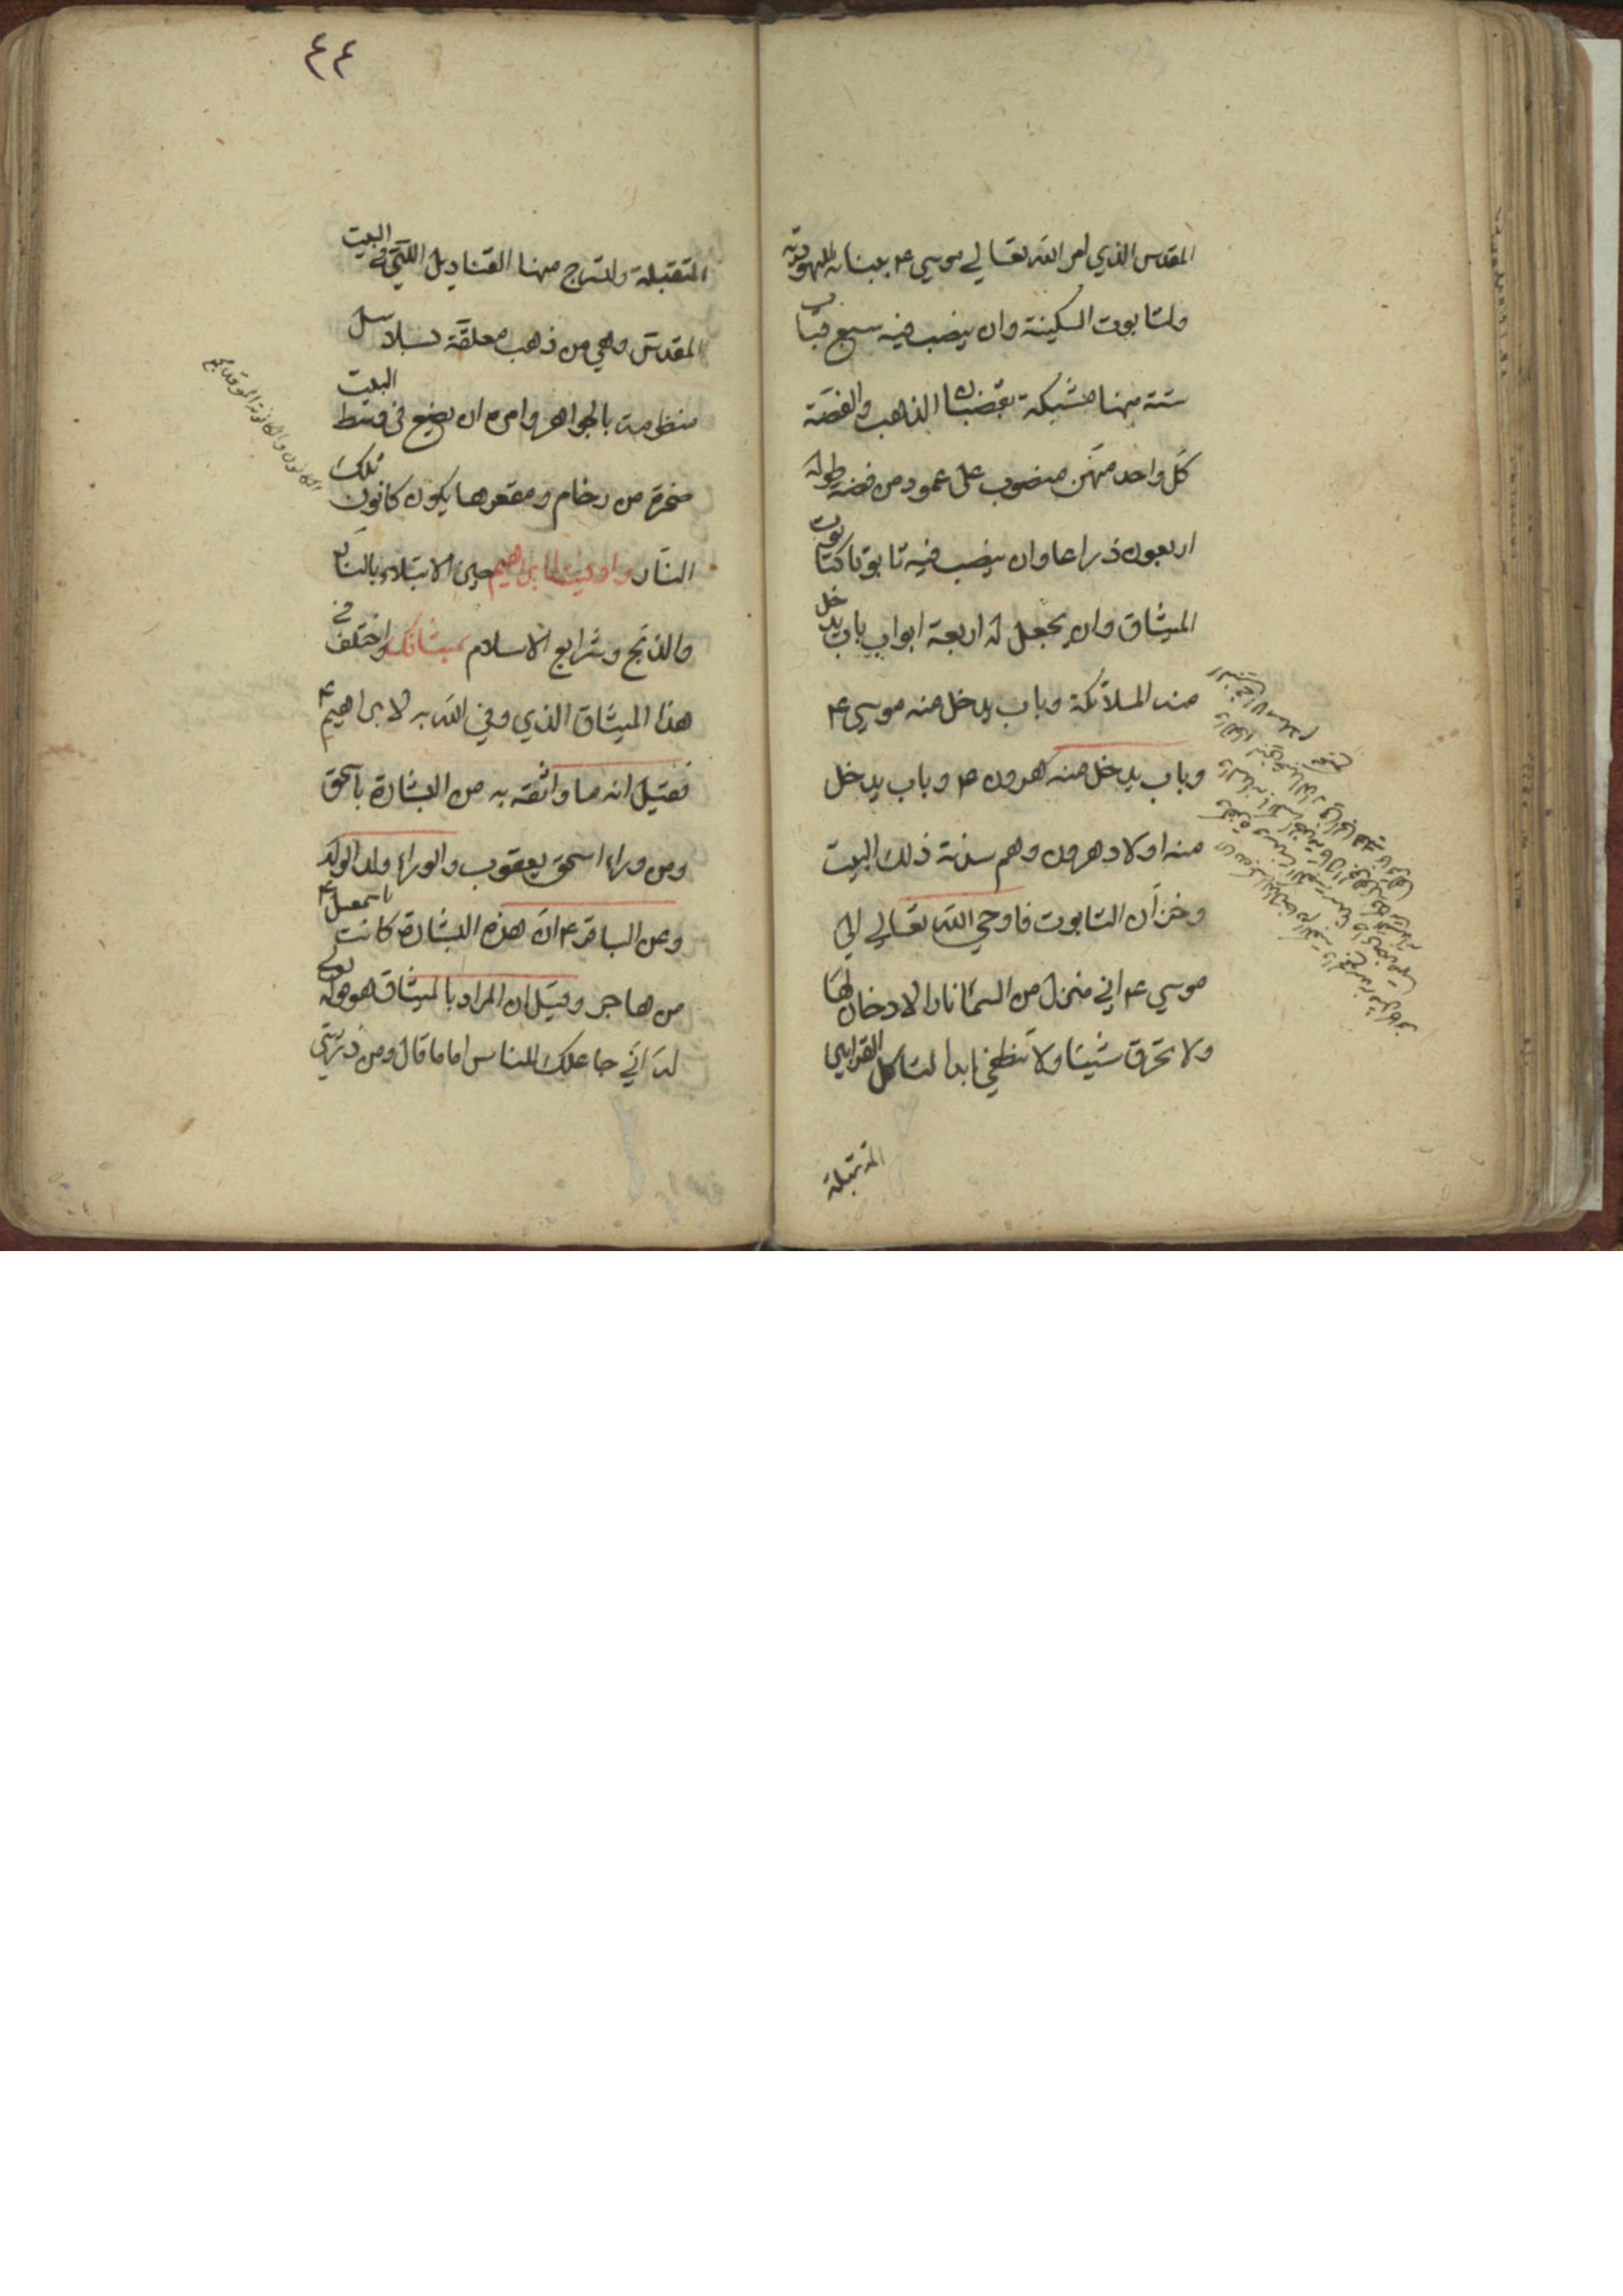 المقدس الذي امر الله تعالي موسي ع ببنائه لليهودية
ولتابوت السكينة وان ينصب فيه سبع قباب
ستة منها مشبكة بقضبان الذهب والفضة
كل واحد منهن منصوب على عمود من فضة طوله
اربعون ذراعا وان ينصب فيه تابوتا كتابوت
الميثاق وان يجعل له اربعة ابواب باب يدخل
منه الملائكة وباب يدخل منه موسي ع
وباب يدخل منه هرون ع وباب يدخل
منه اولاد هرون وهم سدنة ذلك البيت
وخزان التابوت فاوحي الله تعالي الي
موسي ع اني منزل من السماء نارا لا دخان لها
ولا تحرق شيئا ولا تنطفي ابدا لتاكل القرابين
المتقبلة
٤٤
المتقبلة ولتسرج منها القناديل اللتي في البيت
المقدس وهي من ذهب معلقة بسلاسل
منظومة بالجواهر وامره ان يضع في وسط البيت
صخرة من رخام ومقعرها يكون كانون تلك
النار واوفيت لابراهيم حين الابتلاء بالنار
والذبح وشرايع الاسلام بميثاقك واختلف في
هذا الميثاق الذي وفي الله به لابراهيم ع
فقيل انه ما واثقه به من البشارة باسحق
ومن وراء اسحق يعقوب والوراء ولد الولد
وعن الباقر ع ان هذه البشارة كانت باسمعيل ع
من هاجر وقيل ان المراد بالميثاق هو قوله تعالى
له اني جاعلك للناس اماما قال ومن ذريتي
الكانون والكانونة الموقد